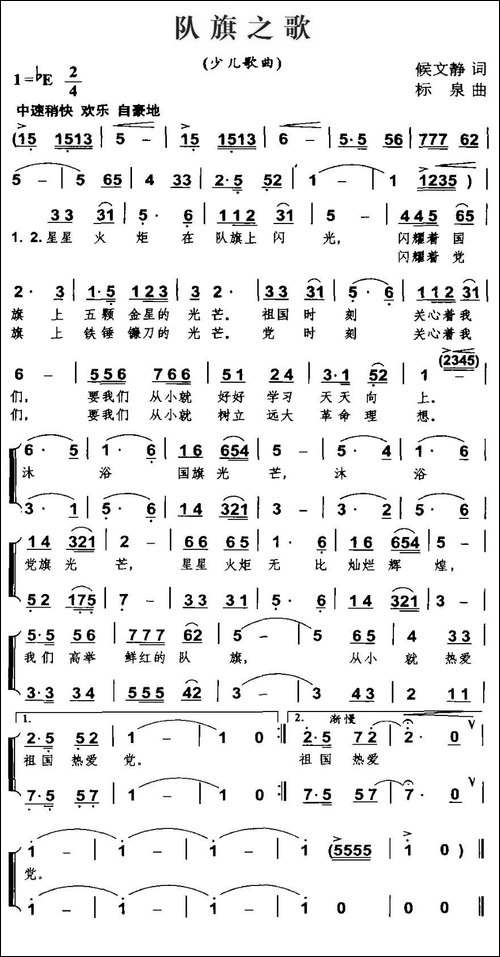 队旗之歌
(少儿歌曲)
1=♭E 2/4
候文静 词
标 泉 曲
中速稍快 欢乐 自豪地
(15 1513 | 6 – | 15 1513 | 6 – | 5·5 56 | 777 62 |
5 – | 5 65 | 4 33 | 2·5 52 | 1 – | 1 1235) |
33 31 | 5· 6 | 112 31 | 5 – | 445 65 |
1. 2. 星星 火 炬 在 队旗上 闪 光, 闪耀着 国
闪耀着 党
2· 3 | 1·5 123 | 3·2 2 | 33 31 | 5· 6 | 112 31 |
旗 上 五颗 金星的 光 芒。 祖国 时 刻 关心着 我
旗 上 铁锤 镰刀的 光 芒。 党 时 刻 关心着 我
(2345)
6 – | 556 766 | 51 24 | 3·1 52 | 1 –
们, 要我们 从小就 好好 学习 天天 向 上。
们, 要我们 从小就 树立 远大 革命 理 想。
6· 5 | 1· 6 | 16 654 | 5 – | 6· 5 | 1· 6 |
沐 浴 国旗 光 芒, 沐 浴
3· 1 | 5· 6 | 14 321 | 3 – | 3· 2 | 5· 6 |
14 321 | 2 – | 66 61 | 1· 6 | 16 654 | 5 – |
党旗 光 芒, 星星 火炬 无 比 灿烂 辉 煌,
52 175 | 7 – | 33 31 | 5· 6 | 14 321 | 3 – |
5·5 56 | 777 62 | 5 – | 5 – | 65 5 | 4 33 |
我们 高举 鲜红的 队 旗, 从小 就 热爱
3·3 34 | 555 42 | 3 – | 3 – | 43 3 | 2 11 |
1.
2. 渐慢
2·5 52 | 1 – | 1 0 :‖ 2·5 72 | 2· 0 |
祖国 热爱 党。 祖国 热爱
7·5 57 | 1 – | 1 0 :‖ 7·5 57 | 7· 0 |
1 – | 1 – | 1 – | 1 – | (5555 | 1 0) ‖
党。
1 – | 1 – | 1 – | 1 – | 0 0 | 0 0 ‖